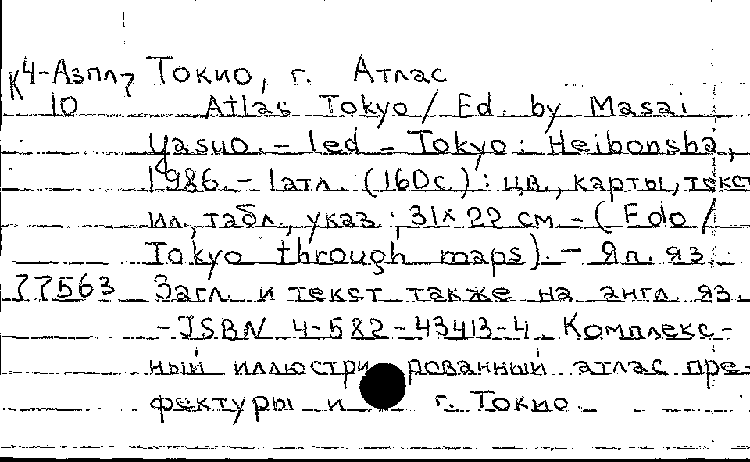 К4-Азпл7 Токио, г. Атлас
10 Atlas Tokyo / Ed. by Masai
Yasuo. - 1ed - Tokyo: Heibonsha,
1986. - 1атл. (160с.): цв., карты, текст
ил., табл., указ; 31x22 см - (Edo /
Tokyo through maps). - Яп. яз.
77563 Загл. и текст также на англ. яз.
- JSBN 4-582-43413-4. Комплекс-
ный иллюстрированный атлас пре-
фектуры и г. Токио.